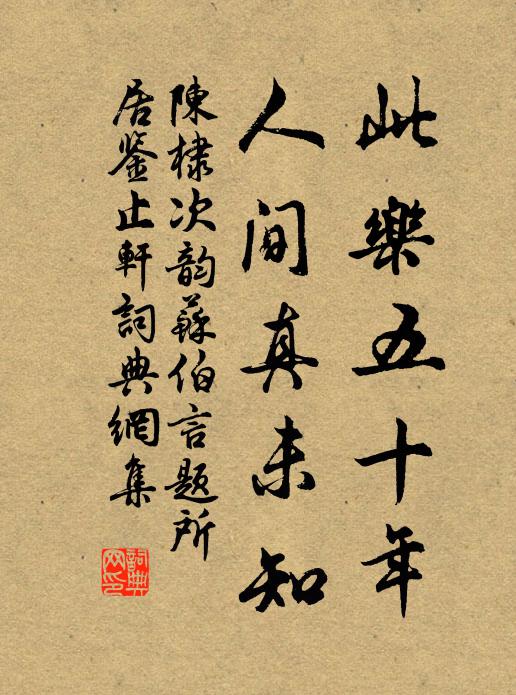 此樂五十年
人間真未知
陳棣次韵蘇伯言題所
居鉴止軒詞典網集
詞典
网印